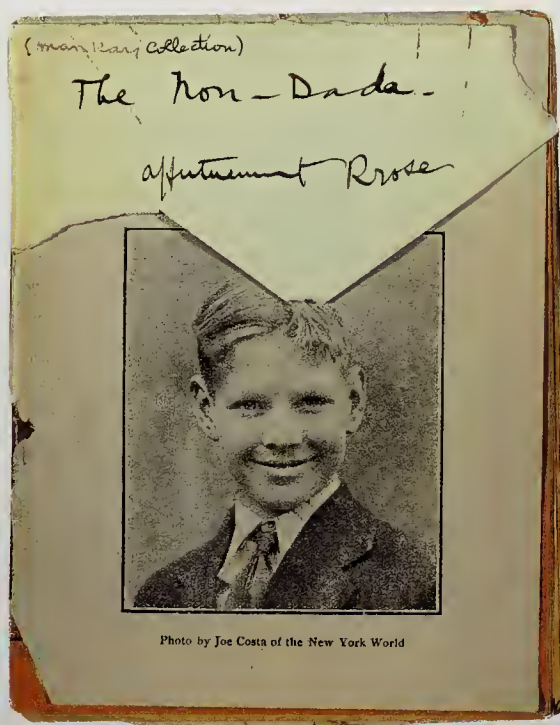 (man Ray Collection)
The Non-Dada-
affectueusement Rrose
Photo by Joe Costa of the New York World